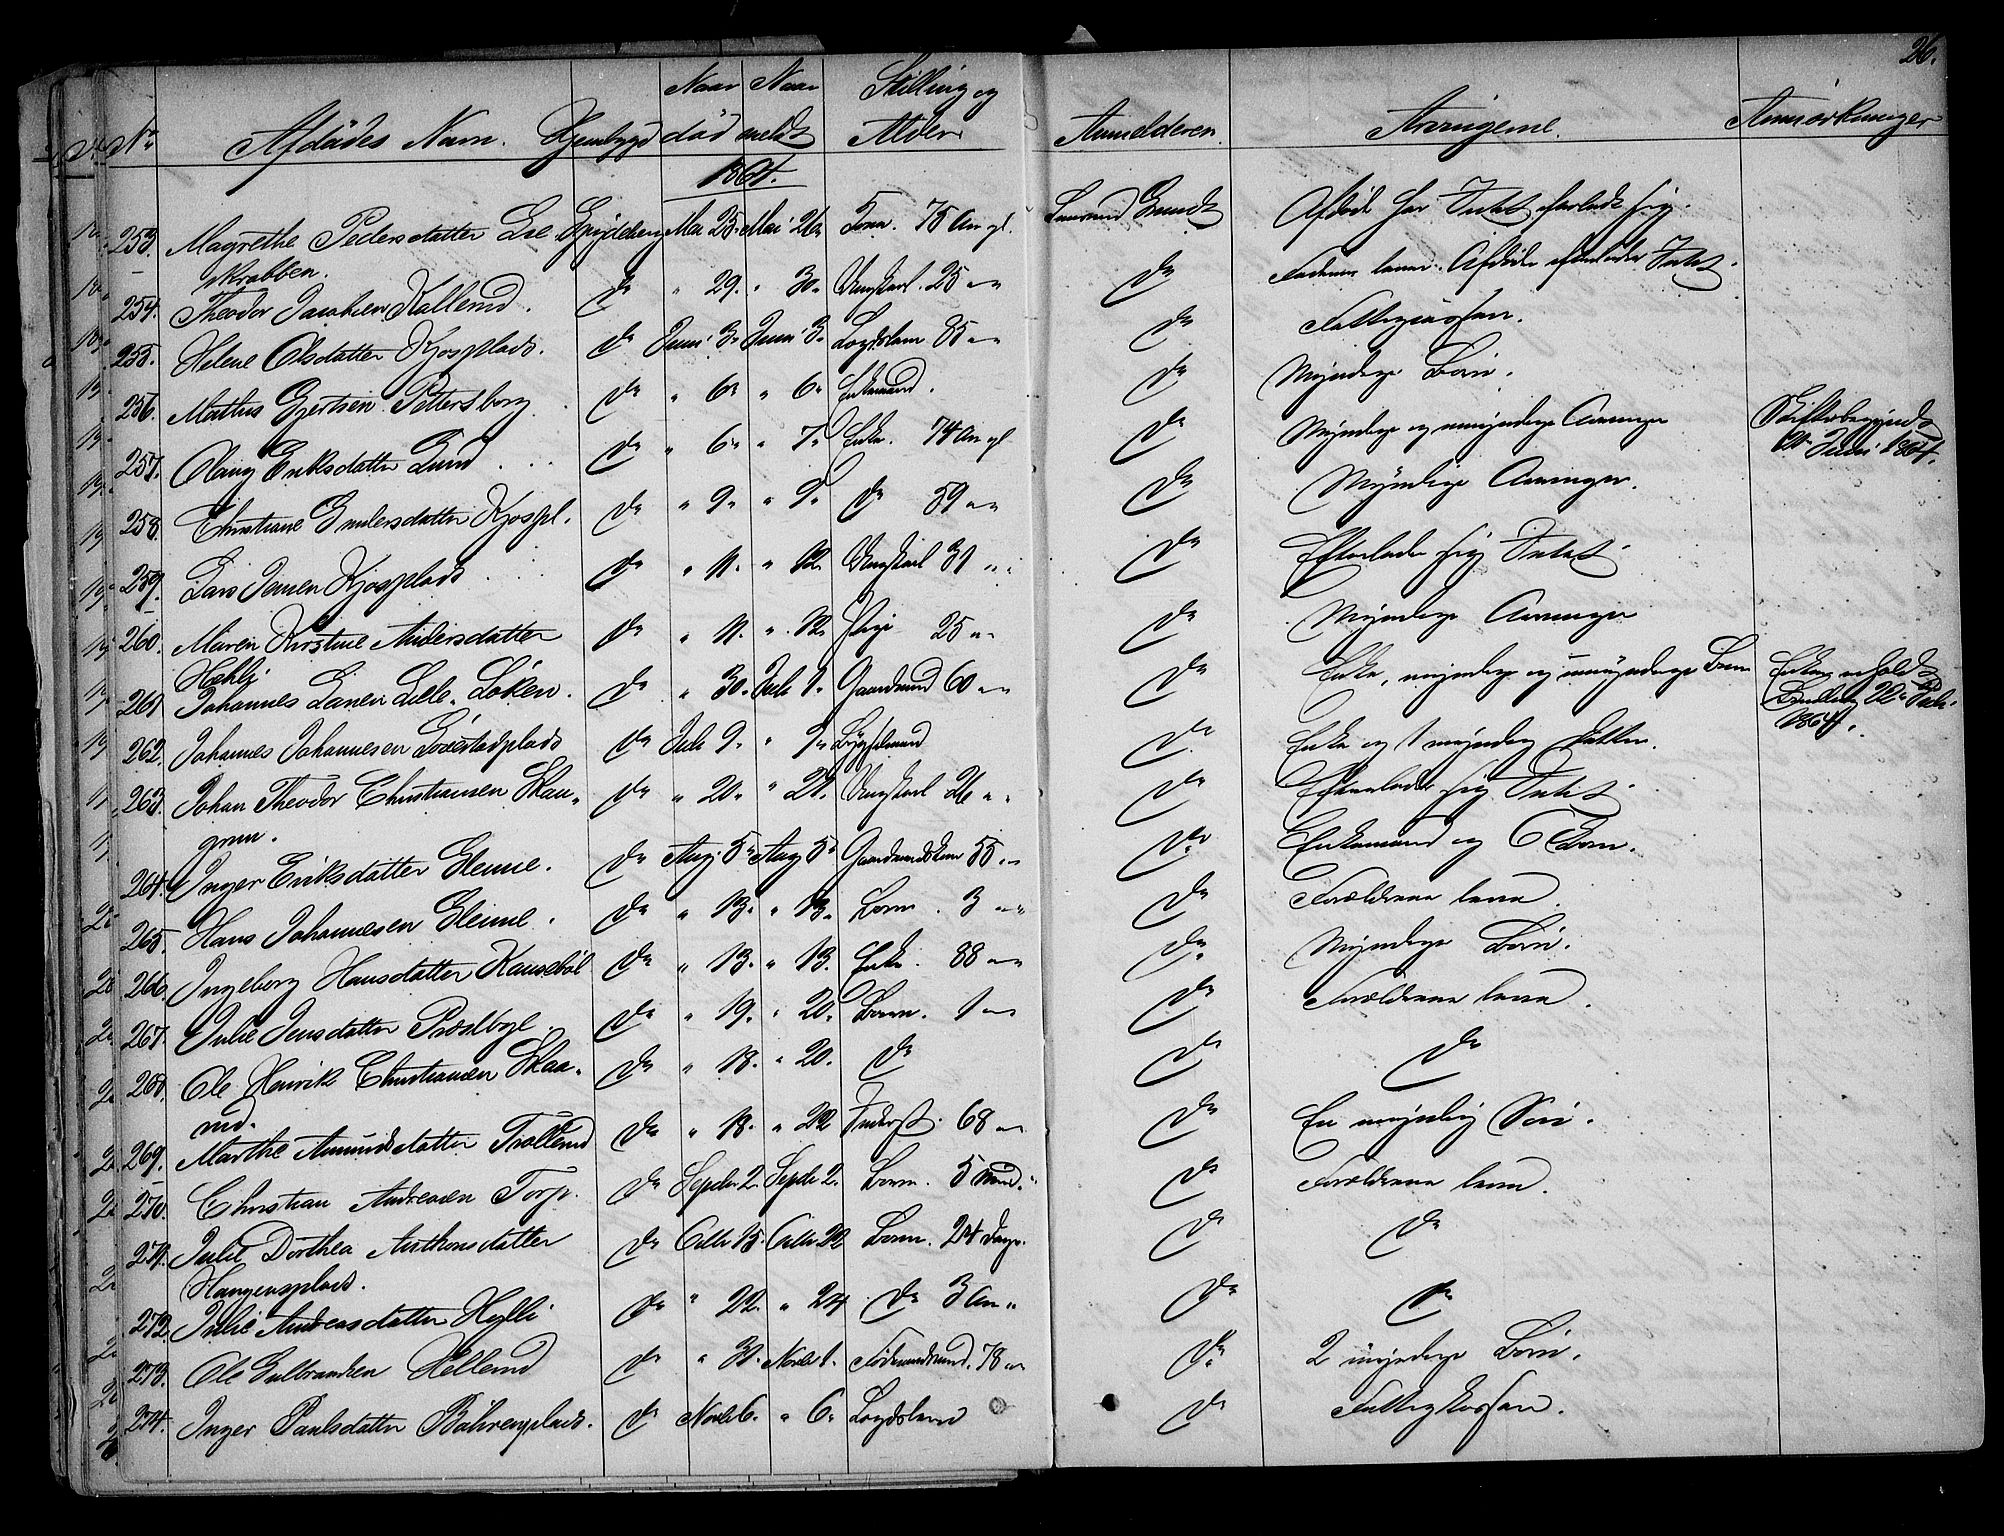 26.
No Afdødes Navn. Hjembygd Naar død Naar meldt Stilling og Alder Anmelderen Arvingerne. Anmærkninger
1864.
253. Magrethe Pedersdatter Lie Spydeberg Mai 25. Mai 26. 75 Aar gl. Lensmand Grundt Afdøde har Intet efterladt sig.
skrabben.
254. Theodor Jacobsen Kallerud. do " 29. " 30. Ungkarl. 25 " do Faderen lever. Afdøde efterlader Intet.
255. Helene Olsdatter Kjosplads. do Juni 3. Juni 3. Lægdslem 85 " do Fattigcassen.
256. Mathis Gjertsen Petersborg do " 6. " 6. Enkemand. do Myndige Børn.
257. Olaug Eriksdatter Lund do " 6. " 7. Enke. 74 Aar gl do Myndige og umyndige Arvinger Skiftebegjynd 21 Juni 1864.
258. Christiane Gundersdatter Kjospl. do " 9. " 9. do 59 " do Myndige Arvinger.
259. Lars Jensen Kjosplads do " 11. " 12. Ungkarl 31 " do Efterlader sig Intet.
260. Maren Kirstine Andersdatter do " 11. " 12. Pige 25 " do Myndige Arvinger
Hehli
261 Johannes Larsen Lille-Løken. do " 30. Juli 1. Gaardmand 60 " do Enke, myndige og umyndige Børn
1864.
262. Johannes Johannesen do Juli 9. " 9. Bygselmand do Enke og 1 myndig Datter.
263. Johan Theodor Christiansen Skau- do " 20. " 21. Ungkarl 26 " do Efterlader sig Intet.
grum.
264. Inger Eriksdatter Glenne. do Aug. 5. Aug 5. Gaardmandskone 55 " do Enkemand og 6 Børn.
265. Hans Johannesen Glenne. do " 13. " 13. Barn. 3 " do Forældrene leve.
266. Ingeborg Hansdatter Kausebøl do " 13. " 13. Enke. 88 " do Myndige Børn.
267. Julie Jensdatter Præstbøl do " 19. " 20. Barn. 1 " do Forældrene leve.
268. Ole Henrik Christiansen Skaa- do " 18. " 20. do do do
rud.
269. Marthe Amundsdatter Trollerud do " 18. " 22 Inderst. 68 " do En myndig Søn.
270. Christian Andreasen Torp. do Septbr 2. Septb 2. Barn. 5 Maad. do Forældrene leve.
271. Julie Dorthea Anthonsdatter do Octbr 15. Octbr 22 Barn. 24 Dage. do do
Haugensplads.
272. Julie Andreasdatter Hylli do " 22. " 24 do 3 Aar " do do
273. Ole Gulbrandsen Hellerud do " 31. Novbr 1. Føderaadsmand. 78 " do 2 myndige Børn.
274. Inger Paulsdatter do Novbr 6. " 6. Lægdslem do Fattigkassen.